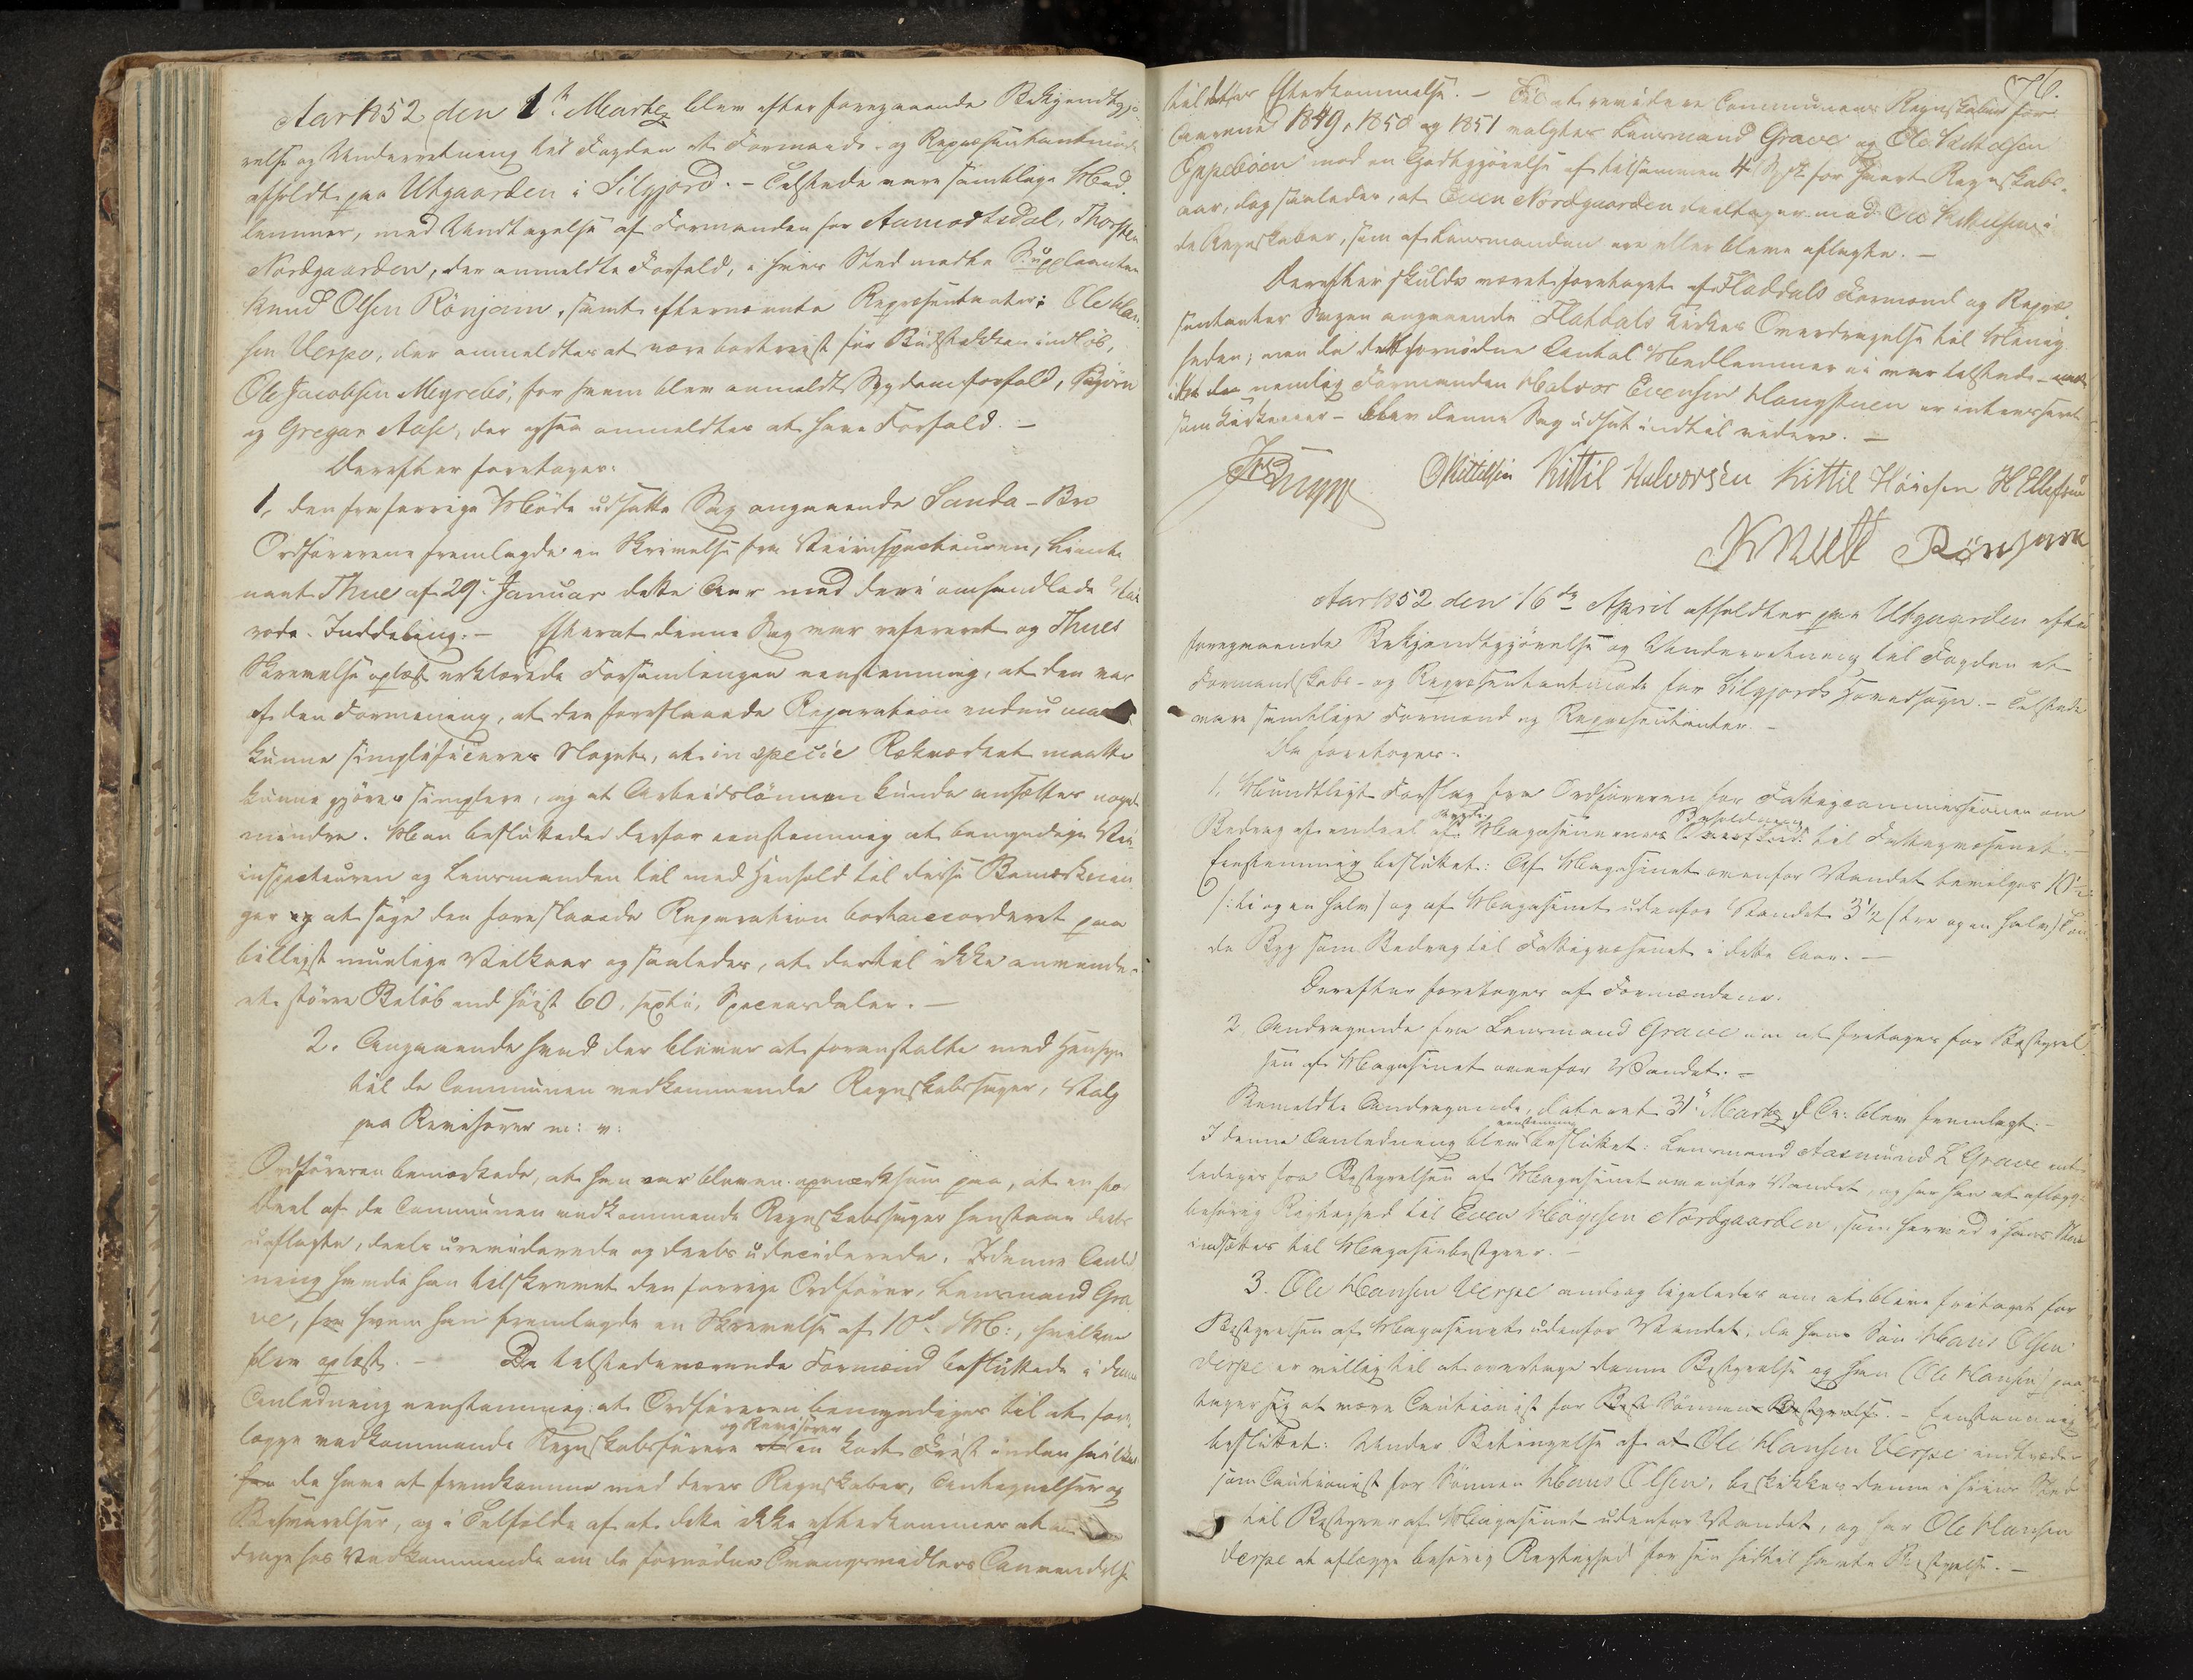 Aar 1852 den 1te Martz blev efter foregaaende Bekjendtgjö-
relse og Underretning til Fogden et Formands- og Repræsentantmöde
afholdt paa Utgaarden i Silgjord. – Tilstede vare samtlige Med-
lemmer, med Undtagelse af Formanden for Aamodtsdal, Thorsten
Nordgaarden, der anmeldte Forfald, i hvis Sted mødte Suppleanten
Knud Olsen Rönjom, samt efternævnte Repræsentanter: Ole Han-
sen Verpe, der anmeldtes at være bortreist før Budstikken indløb,
Ole Jacobsen Meyrebö, for hvem blev anmeldt Sygdomsforfald, Björn
og Gregar Aase, der ogsaa anmeldtes at have Forfald. –
Derefter foretoges:
1, den fra forrige Möde udsatte Sag angaaende Sanda-Bro
Ordföreren fremlagde en Skrivelse fra Veiinspecteuren, Lieute-
nant Thue af 29. Januar dette Aar med deri omhandlede
rode-Inddeling. – Efterat denne Sag var refereret og Thues
Skrivelse oplæst erklærede Forsamlingen eenstemmig, at den var
af den Formening, at den foreslaaede Reparation endnu maatte
kunne simplificeres Noget, at in specie Rekværket maatte
kunne gjöres simplere, og at Arbeidslönnen kunde ansættes noget
mindre. Man besluttede derfor eenstemmig at bemyndige Vei-
inspecteuren og Lensmanden til med Henhold til disse Bemærknin-
ger at söge den foreslaaede Reparation bortaccorderet paa
billigst muelige Vilkaar og saaledes, at dertil ikke anvendes
et större Belöb end höist 60, sexti, Speciesdaler. –
2. Angaaende hvad der bliver at foranstalte med Hensyn
til de Communen vedkommende Regnskabssager, Valg
paa Revisorer m: v:
Ordföreren bemærkede, at han var bleven opmærksom paa, at en stor
Deel af de Communen vedkommende Regnskabssager henstaae deels
uaflagte, deels ureviderede og deels udeciderede. I denne Anled-
ning havde han tilskrevet den forrige Ordförer, Lensmand Gra-
ve, fra hvem han fremlagde en Skrivelse af 10d M:, hvilken
blev oplæst. – De tilstedeværende Formænd besluttede i denne
Anledning eenstemmig: at Ordföreren bemyndiges til at fore-
og Revisorer
lægge vedkommende Regnskabsförere en kort Frist inden hvilken
de have at fremkomme med deres Regnskaber, Antegnelser og
Besvarelser, og i Tilfælde af at dette ikke efterkommes at an-
drage hos Vedkommende om de fornödne Tvangsmidlers Anvendelse
76.
til dettes Efterkommelse. – Til at revidere Communens Regnskaber for
Aarene 1849, 1850 og 1851 valgtes Lensmand Grave og Ole Kittelsen
Oppeböen mod en Godtgjörelse af tilsammen 4 Spd. for hvert Regnskabs-
aar, dog saaledes, at Even Nordgaarden deeltager med Ole Kittelsen i
de Regnskaber, som af Lensmanden ere eller bleve aflagte. –
Derefter skulde været foretaget af Flatdals Formænd og Repræ-
sentanter Sagen angaaende Flatdals Kirkes Overdragelse til Menig-
heden; men da det fornödne Antal Medlemmer ei var tilstede –
nemlig Formanden Halvor Evensen Haugstuen er interesseret
som Kirkeeier – blev denne Sag udsat indtil videre. –
OKittilsen Kittil Halvorsen Kittil Höiesen H Ellefsen
Knutt Rönjom
Aar 1852 den 16de April afholdtes paa Utgaarden efter
foregaaende Bekjendtgjörelse og Underretning til Fogden et
Formandskabs- og Repræsentantmöde for Silgjords Hovedsogn. – Tilstede
vare samtlige Formænd og Repræsentanter. –
Da foretoges:
1. Mundtligt Forslag fra Ordföreren for Fattigcommissionen om
Beholdning
Bidrag af endeel af Magasinernes til Fattigvæsenet. –
Eenstemmig besluttet: Af Magasinet ovenfor Vandet bevilges 10½
(ti og en halv) og af Magasinet udenfor Vandet 3½ (tre og en halv) Tön-
de Byg som Bidrag til Fattigvæsenet i dette Aar. –
Derefter foretoges af Formændene.
2, Andragende fra Lensmand Grave om at fritages for Bestyrel-
sen af Magasinet ovenfor Vandet. –
Bemeldte Andragende, dateret 31. Martz d. A: blev fremlagt. –
eenstemmig
I denne Anledning blev besluttet: Lensmand Aasmund L Grave ent-
lediges fra Bestyrelsen af Magasinet ovenfor Vandet, og har han at aflægge
behörig Rigtighed til Even Höyesen Nordgaarden, som herved i hans Sted
indsættes til Magasinbestyrer. –
3. Ole Hansen Verpe androg ligeledes om at blive fritaget for
Bestyrelsen af Magasinet udenfor Vandet, da hans Sön Hans Olsen
Verpe er villig til at overtage denne Bestyrelse og han (Ole Hansen) paa-
tager sig at være Cautionist for Sönnen. – Eenstemmig
besluttet: Under Betingelse af at Ole Hansen Verpe indtræder
som Cautionist for Sönnen Hans Olsen, beskikkes denne i hans Sted
til Bestyrer af Magasinet udenfor Vandet, og har Ole Hansen
Verpe at aflægge behörig Rigtighed for sin hidtil havte Bestyrelse. –